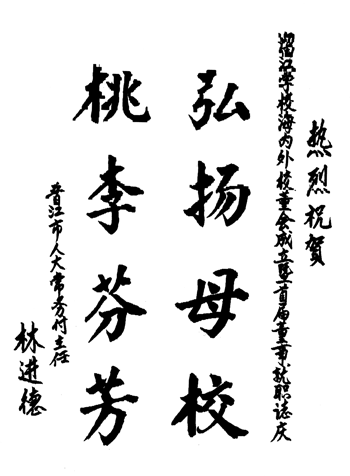 热烈祝贺
溜江学校海内外校董会成立暨首届董事就职志庆
弘扬母校
桃李芬芳
晋江市人大常务付主任
林进德